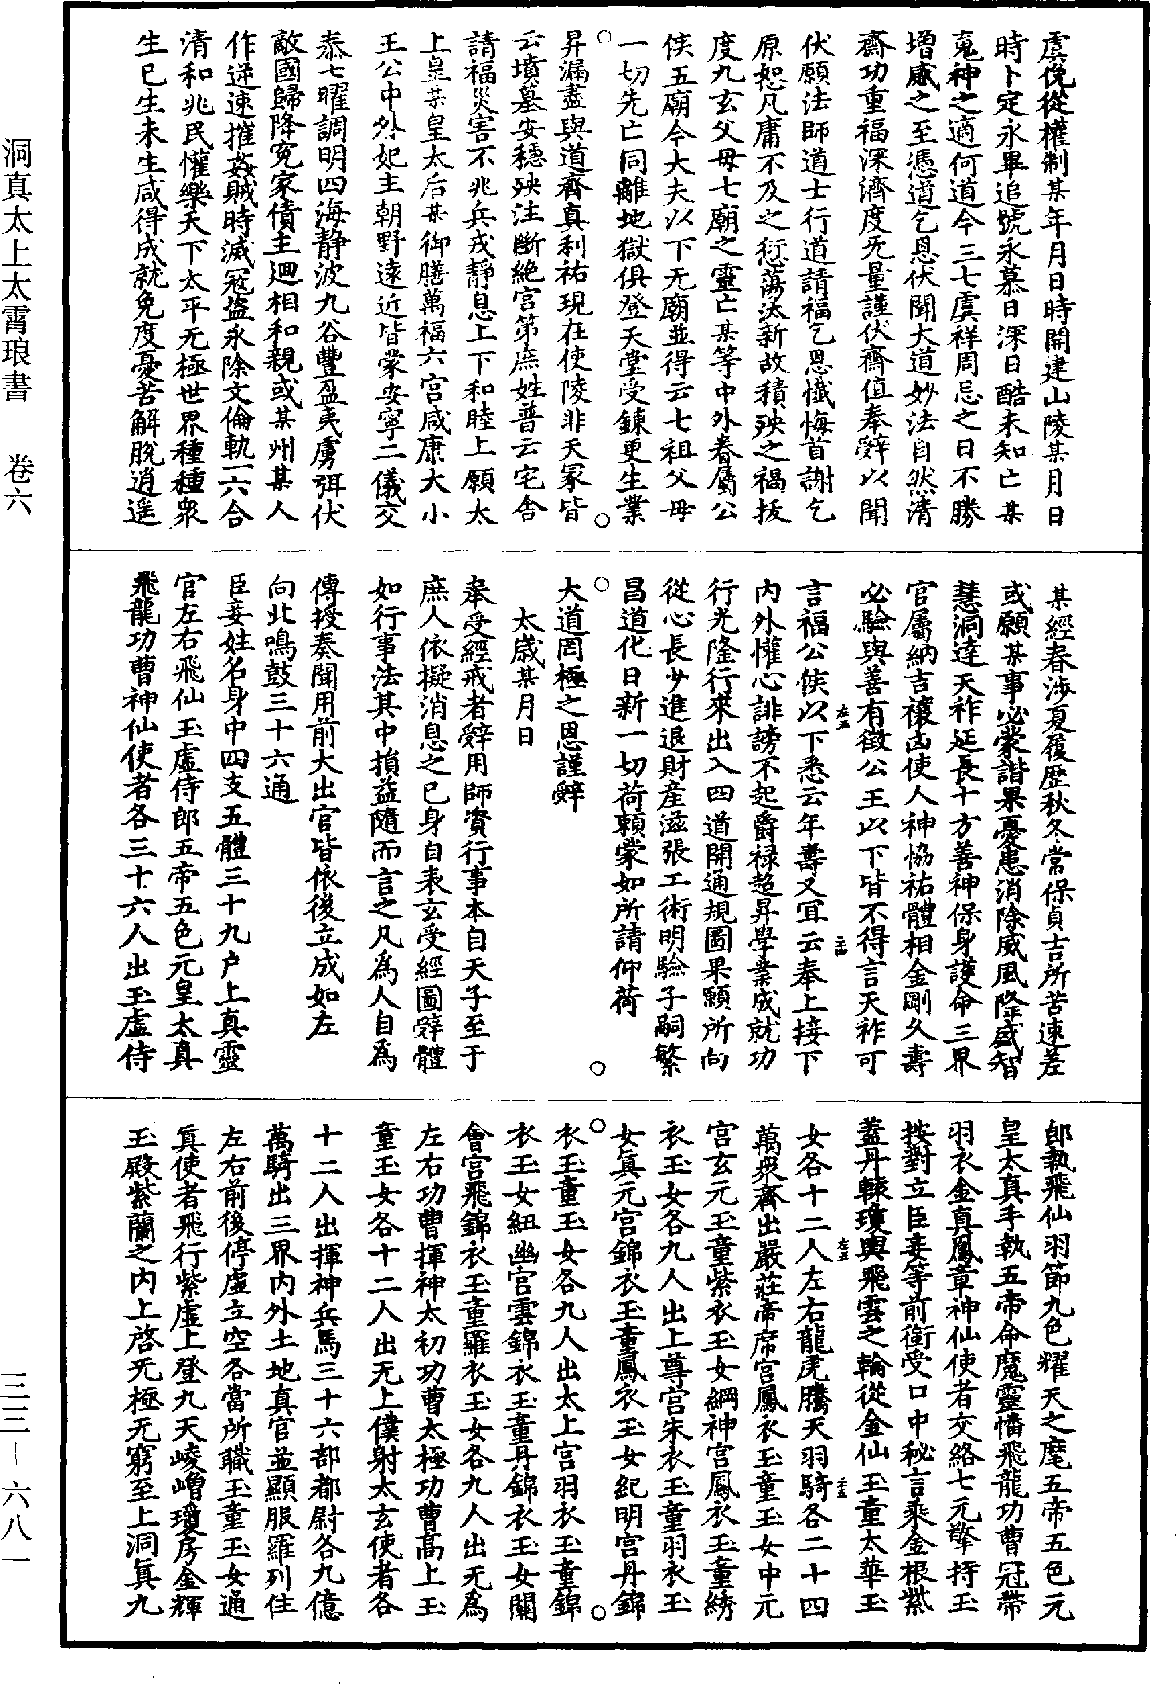 虞俛從權制某年月日時開建山陵某月日
時卜定永畢追號永慕日深日酷未知亡某
䰟神之適何道今三七虞祥周忌之日不勝
增感之至憑道乞恩伏聞大道妙法自然清
齋功重福深濟度无量謹伏齋值奉辭以聞
伏願法師道士行道請福乞恩懺悔首謝乞
原恕凡庸不及之愆蕩汰新故積殃之禍拔
度九玄父母七廟之靈亡某等中外眷屬公
侯五廟今大夫以下无廟並得云七祖父母
一切先亡同離地獄俱登天堂受鍊更生業
昇漏盡與道齊真利祐現在使陵非天冢皆
云墳墓安穩殃注斷絕宫第庶姓普云宅舍
請福災害不兆兵戎靜息上下和睦上願太
上皇某皇太后某御膳萬福六宫咸康大小
王公中外妃主朝野遠近皆蒙安寧二儀交
泰七曜調明四海靜波九谷豐盈夷虜弭伏
敵國歸降冤家債主迴相和親或某州某人
作逆速摧姦賊時滅寇盜永除文倫軌一六合
清和兆民懽樂天下太平无極世界種種衆
生已生未生咸得成就免度憂苦解脫逍遥
某經春涉夏履歷秋冬常保貞吉所苦速差
或願某事必蒙諧果憂患消除威風降盛智
慧洞達天祚延長十方善神保身護命三界
官屬納吉禳凶使人神恊祐體相金剛久壽
必驗與善有徵公王以下皆不得言天祚可
言福公侯以下悉云年壽又宜云奉上接下
内外懽心誹謗不起爵禄超昇學業成就功
行光隆行來出入四道開通規圖果願所向
從心長少進退財産滋張工術明驗子嗣繁
昌道化日新一切荷賴蒙如所請仰荷
大道罔極之恩謹辭
太歲某月日
奉受經戒者辭用師資行事本自天子至于
庶人依擬消息之已身自表玄受經圖辭體
如行事法其中損益隨而言之凡為人自為
傳授奏聞用前大出官皆依後立成如左
向北鳴鼓三十六通
臣妾姓名身中四支五體三十九戶上真靈
官左右飛仙玉虚侍郎五帝五色元皇太真
飛龍功曹神仙使者各三十六人出玉虚侍
郎執飛仙羽節九色耀天之麾五帝五色元
皇太真手執五帝命魔靈幡飛龍功曹冠帶
羽衣金真鳳章神仙使者交絡七元擎持玉
按對立臣妾等前銜受口中秘言乘金根紫
蓋丹轅瓊輿飛雲之輪從金仙玉童太華玉
女各十二人左右龍虎騰天羽騎各二十四
萬衆齊出嚴莊帝席宫鳳衣玉童玉女中元
宫玄元玉童紫衣玉女綱神宫鳳衣玉童綉
衣玉女各九人出上尊宫朱衣玉童羽衣玉
女真元宫錦衣玉童鳳衣玉女紀明宫丹錦
衣玉童玉女各九人出太上宫羽衣玉童錦
衣玉女紐幽宫雲錦衣玉童丹錦衣玉女關
會宫飛錦衣玉童羅衣玉女各九人出无為
左右功曹揮神太初功曹太極功曹高上玉
童玉女各十二人出无上僕射太玄使者各
十二人出揮神兵馬三十六部都尉各九億
萬騎出三界内外土地真官並顯服羅列住
左右前後停虚立空各當所職玉童玉女通
真使者飛行紫虚上登九天崚嶒瓊房金輝
玉殿紫蘭之内上啓无極无窮至上洞真九
洞真太上太霄琅書　卷六
三三－六八一